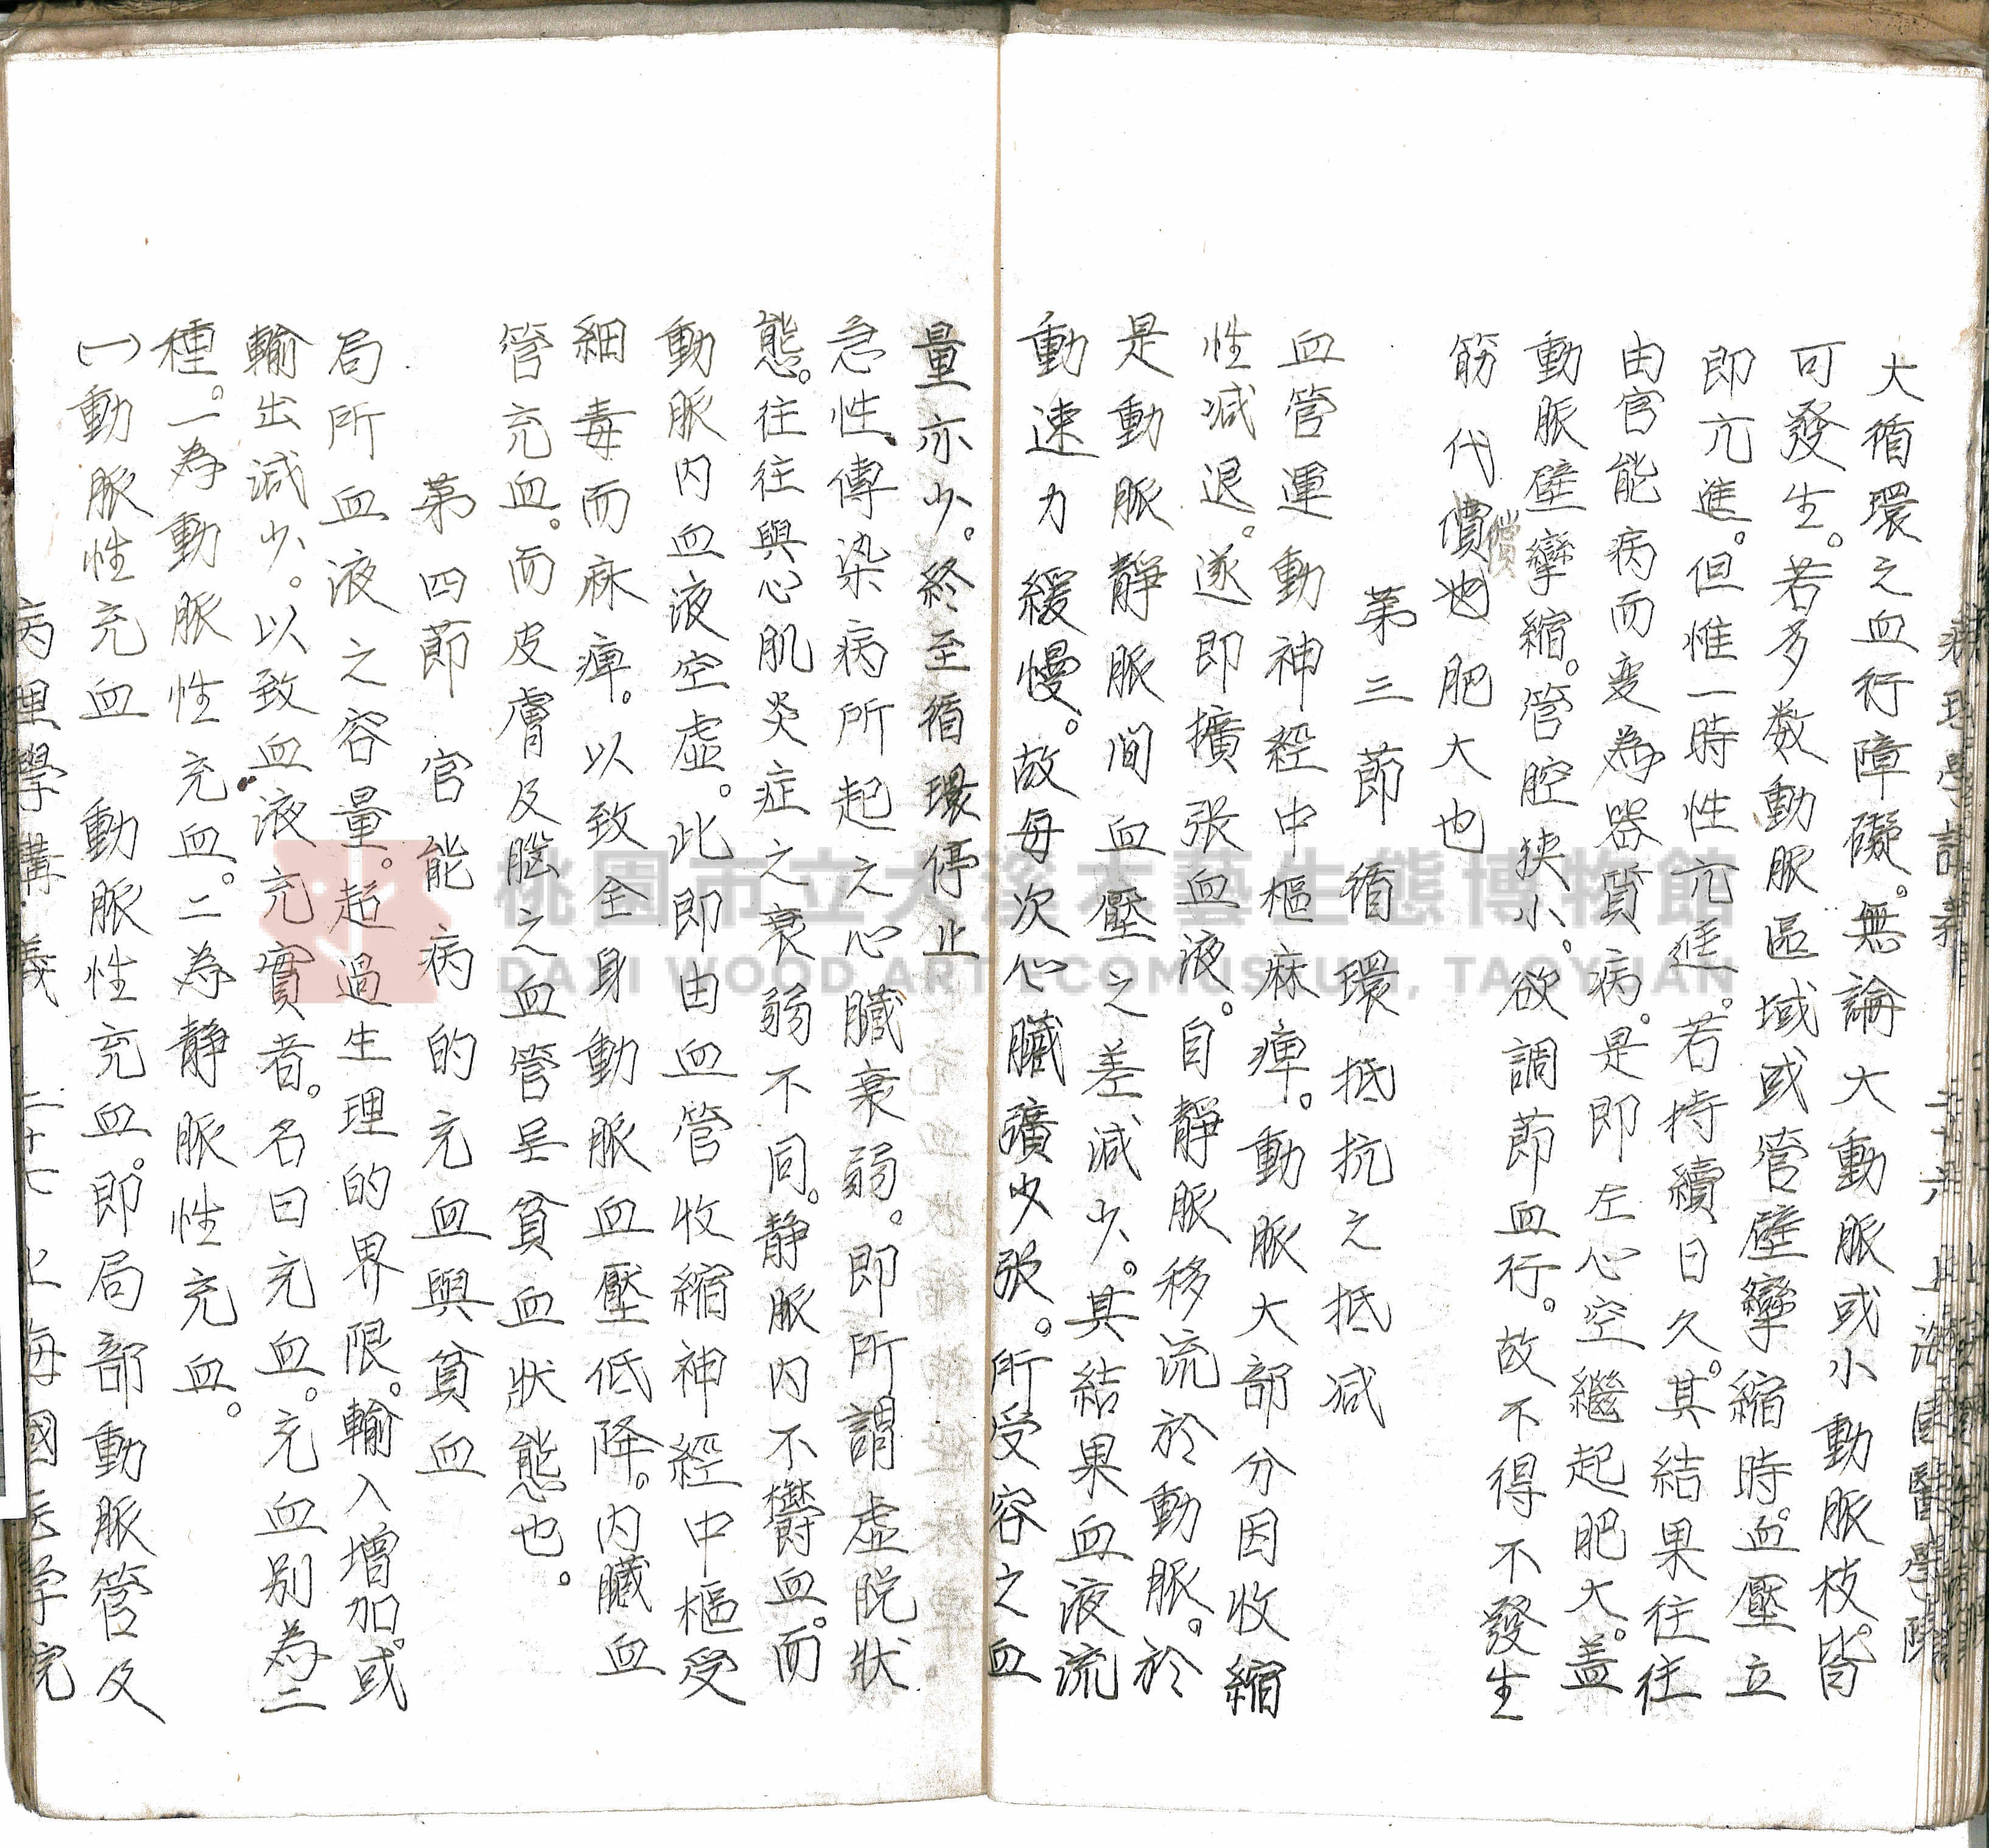 病理學講義 二十六 上海國醫學院
大循環之血行障礙。無論大動脈或小動脈枝。皆
可發生。若多数動脈區域或管壁攣縮時。血壓立
即亢進。但惟一時性亢進。若持續日久。其結果往往
由官能病而变為器質病。是即左心空繼起肥大。盖
動脈壁攣縮。管腔狹小。欲調節血行。故不得不發生
筋代價也肥大也
償
第三節 循環抵抗之抵减
血管運動神經中樞麻痺。動脈大部分因收縮
性减退。遂即擴張血液。自靜脈移流於動脈。於
是動脈靜脈间血壓之差减少。其結果血液流
動速力緩慢。故每次心臟擴少張。所受容之血
量亦少。終至循環停止
急性傳染病所起之心臟衰弱。即所謂虛脱狀
態。往往與心肌炎症之衰弱不同。静脈内不欝血。而
動脈内血液空虛。此即由血管收縮神經中樞受
細毒而麻痺。以致全身動脈血壓低降。内臟血
管充血。而皮膚及腦之血管呈貧血狀態也。
第四節 官能病的充血與貧血
局所血液之容量。超過生理的界限。輸入增加。或
輸出减少。以致血液充實者。名曰充血。充血别為二
種。一為動脈性充血。二為静脈性充血。
(一)動脈性充血 動脈性充血。即局部動脈管及
病理學講義 二十七 上海國医学院
桃園市立大溪木藝生態博物館
DAXI WOOD ART ECOMUSEUM, TAOYUAN